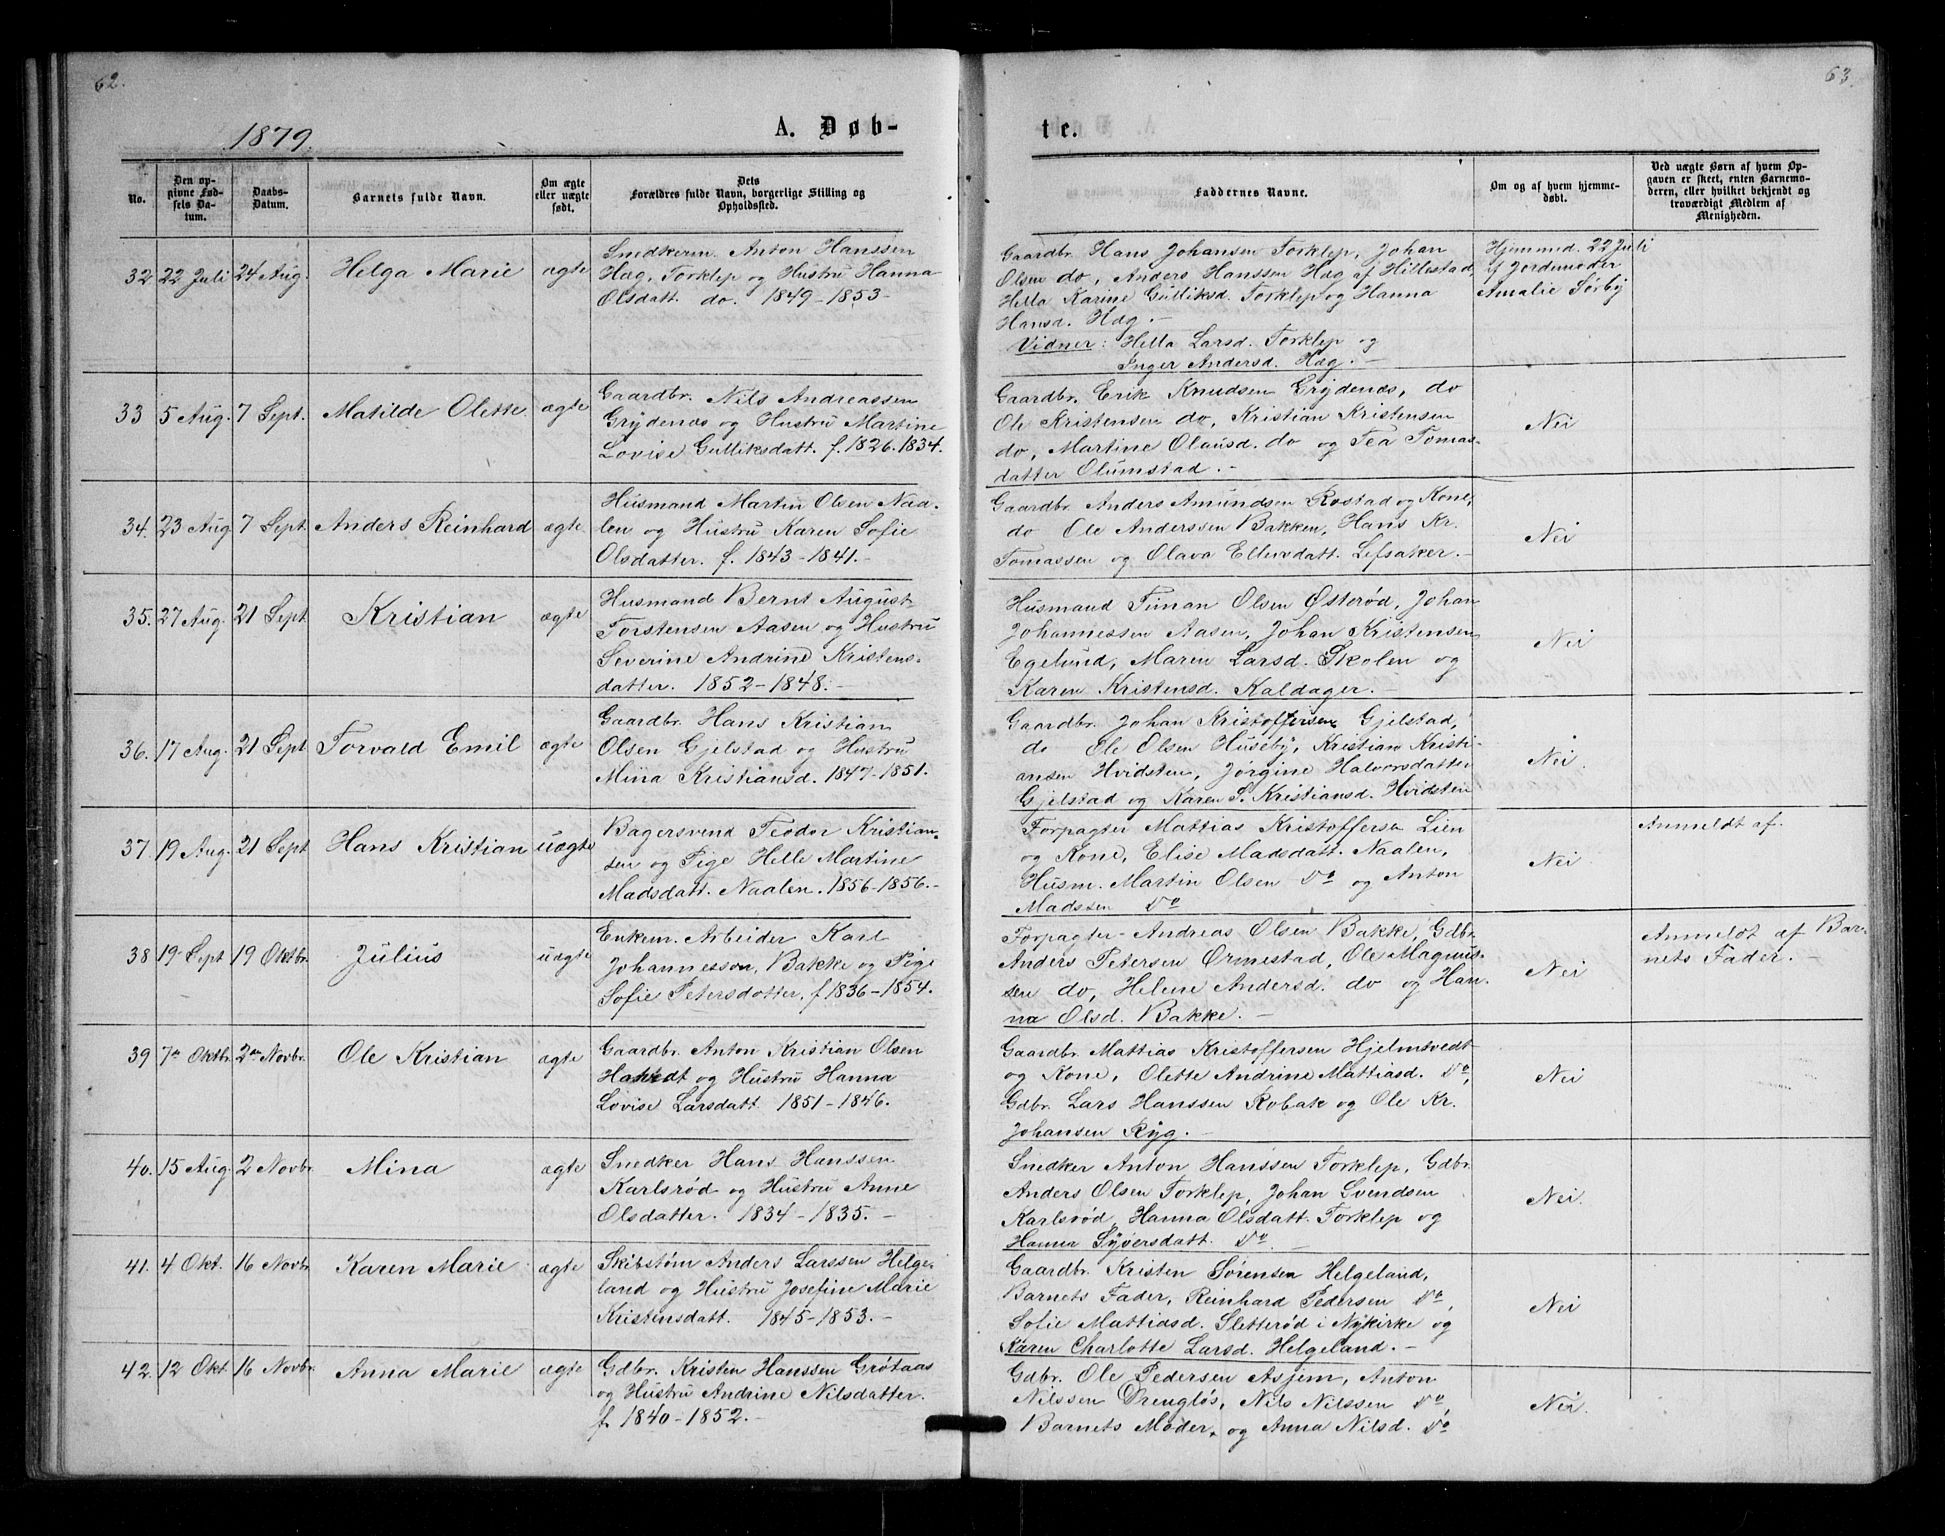 62.
1879.
A. Døb-
No.
Den op-
givne Fød-
sels Da-
tum.
Daabs-
Datum.
Barnets fulde Navn.
Om ægte
eller uægte
født.
Dets
Forældres fulde Navn, borgerlige Stilling og
Opholdssted.
32 22 Juli 24 Aug. Helga Marie ægte
Snedkerm. Anton Hanssen
Hæg, Torklep og Hustru Hanna
Olsdatt. do. 1849-1853-
33 5 Aug. 7 Sept. Matilde Olette ægte
Gaardbr. Nils Andreassen
Grydenæs og Hustru Martine
Lovise Gulliksdatt. f. 1826. 1834.
34. 23 Aug 7 Sept. Anders Reinhard ægte
Husmand Martin Olsen Naa-
len og Hustru Karen Sofie
Olsdatter. f. 1843-1841.-
35. 27 Aug. 21 Sept Kristian ægte
Husmand Bernt August
Torstensen Aasen og Hustru
Severine Andrine Kristens-
datter. 1852-1848.-
36. 17 Aug. 21 Sept Torvald Emil ægte
Gaardbr. Hans Kristian
Olsen Gjelstad og Hustru
Mina Kristiansd. 1847-1851.
37. 19 Aug. 21 Sept Hans Kristian uægte
Bagersvend Teodor Kristian-
sen og Pige Helle Martine
Madsdatt. Naalen. 1856-1856.-
38 19 Sept 19 Oktbr. Julius uægte
Enkem. Arbeider Karl
Johannesson, Bakke og Pige
Sofie Petersdatter. f 1836-1854.
39 7de Oktbr. 2den Novbr. Ole Kristian ægte
Gaardbr. Anton Kristian Olsen
og Hustru Hanna
Lovise Larsdatt. 1851-1846.
40. 15 Aug. 2 Novbr. Mina ægte
Snedker Hans Hanssen
Karlsrød og Hustru Anne
Olsdatter. 1834-1835.-
41. 4 Okt. 16 Novbr. Karen Marie ægte
Skibstøm Anders Larssen Helge-
land og Hustru Josefine Marie
Kristensdatt. 1845-1853.-
42. 12 Okt. 16 Novbr. Anna Marie ægte
Gdbr. Kristen Hanssen Grøtaas
og Hustru Andrine Nilsdatter.
f. 1840-1852.-
63.
te.
Faddernes Navne.
Om og af hvem hjemme-
døbt.
Ved uægte Børn af hvem Op-
gaven er skeet, enten Barnemo-
deren, eller hvilket bekjendt og
troværdigt Medlem af
Menigheden.
Gaardbr. Hans Johansen Torklep, Johan
Olsen do, Anders Hanssen Hæg af Hillestad,
Hella Karine Gulliksd. Torklep og Hanna
Hansd. Hæg.-
Vidner: Hella Larsd. Torklep og
Inger Andersd. Hæg.-
Hjemmed. 22 Juli
af Jordemoder
Amalie Sørby
Gaardbr. Erik Knudsen Grydenæs, do
Ole Kristensen do, Kristian Kristensen
do, Martine Olausd. do og Tea Tomas-
datter Olumstad.-
Nei
Gaardbr. Anders Amundsen Rostad og Kone,
do Ole Anderssen Bakken, Hans Kr.
Tomassen og Olava Ellensdatt. Lefsaker.-
Nei
Husmand Timan Olsen Østerød, Johan
Johannessen Aasen, Johan Kristensen
Egelund, Maren Larsd. Skolen og
Karen Kristensd. Kaldager.-
Nei
Gaardbr. Johan Kristoffersen Gjelstad,
do Ole Olsen Huseby, Kristian Kristi-
ansen Hvidsten, Jørgine Halvorsdatter
Gjelstad og Karen S. Kristiansd. Hvidsten
Nei.
Forpagter Mattias Kristoffersen Lien
og Kone, Elise Madsdatt. Naalen,
Husm. Martin Olsen Do og Anton
Madssen Do
Nei
Anmeldt af.
Forpagter Andreas Olsen Bakke, Gdbr.
Anders Petersen Ormestad, Ole Magnus-
sen do, Helene Andersd. do og Han-
na Olsd. Bakke.-
Nei
Anmeldt af Bar-
nets Fader.-
Gaardbr. Mattias Kristoffersen Hjelmtvedt
og Kone, Olette Andrine Mattiasd. Do,
Gdbr. Lars Hanssen Robak og Ole Kr.
Johansen Ryg.-
Nei
Snedker Anton Hanssen Torklep, Gdbr.
Anders Olsen Torklep, Johan Svendsen
Karlsrød, Hanna Olsdatt. Torklep og
Hanna Syversdatt. Do.-
Nei.
Gaardbr. Kristen Sørensen Helgeland,
Barnets Fader, Reinhard Pedersen Do,
Sofie Mattiasd. Sletterød i Nykirke og
Karen Charlotte Larsd. Helgeland.-
Nei
Gdbr. Ole Pedersen Asjem, Anton
Nilssen Drengløs, Nils Nilssen Do,
Barnets Moder, og Anna Nilsd. Do
Nei.